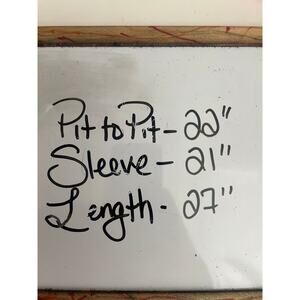 Pit to Pit - 22"
Sleeve - 21"
Length - 27"